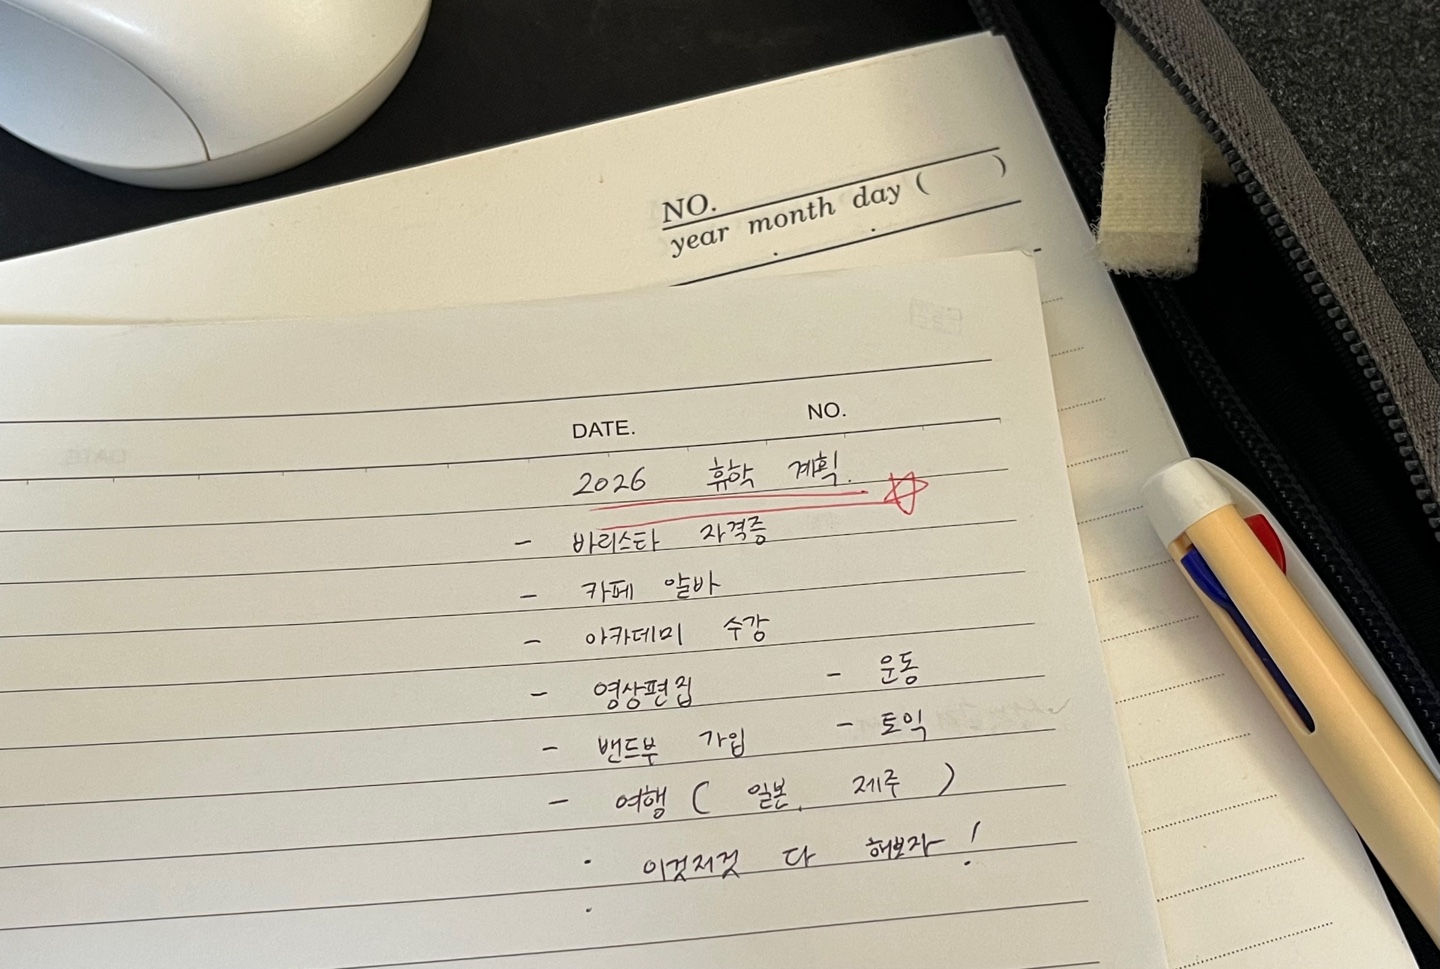 NO.
year month day ( )
DATE. NO.
2026 휴학 계획.
- 바리스타 자격증
- 카페 알바
- 아카데미 수강
- 영상편집 - 운동
- 밴드부 가입 - 토익
- 여행 ( 일본, 제주 )
이것저것 다 해보자!